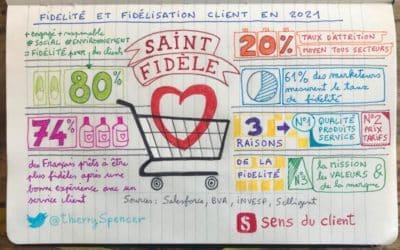 FIDÉLITÉ ET FIDÉLISATION CLIENT EN 2021
+ engagé + responsable
# SOCIAL # ENVIRONNEMENT
= FIDÉLITÉ pour des clients
80%
74%
des Français prêts à être
plus fidèles après une
bonne expérience avec un
service client
SAINT
FIDÈLE
20%
TAUX D'ATTRITION
MOYEN TOUS SECTEURS
61% des marketeurs
mesurent le taux
de fidélité
3
RAISONS
DE LA
FIDÉLITÉ
N°1
QUALITÉ
PRODUITS
SERVICE
N°2
PRIX
TARIFS
N°3
la mission
les VALEURS &
de la marque
Sources : Salesforce, BVA, INVESP, Selligent
@thierrySpencer
S sens du client